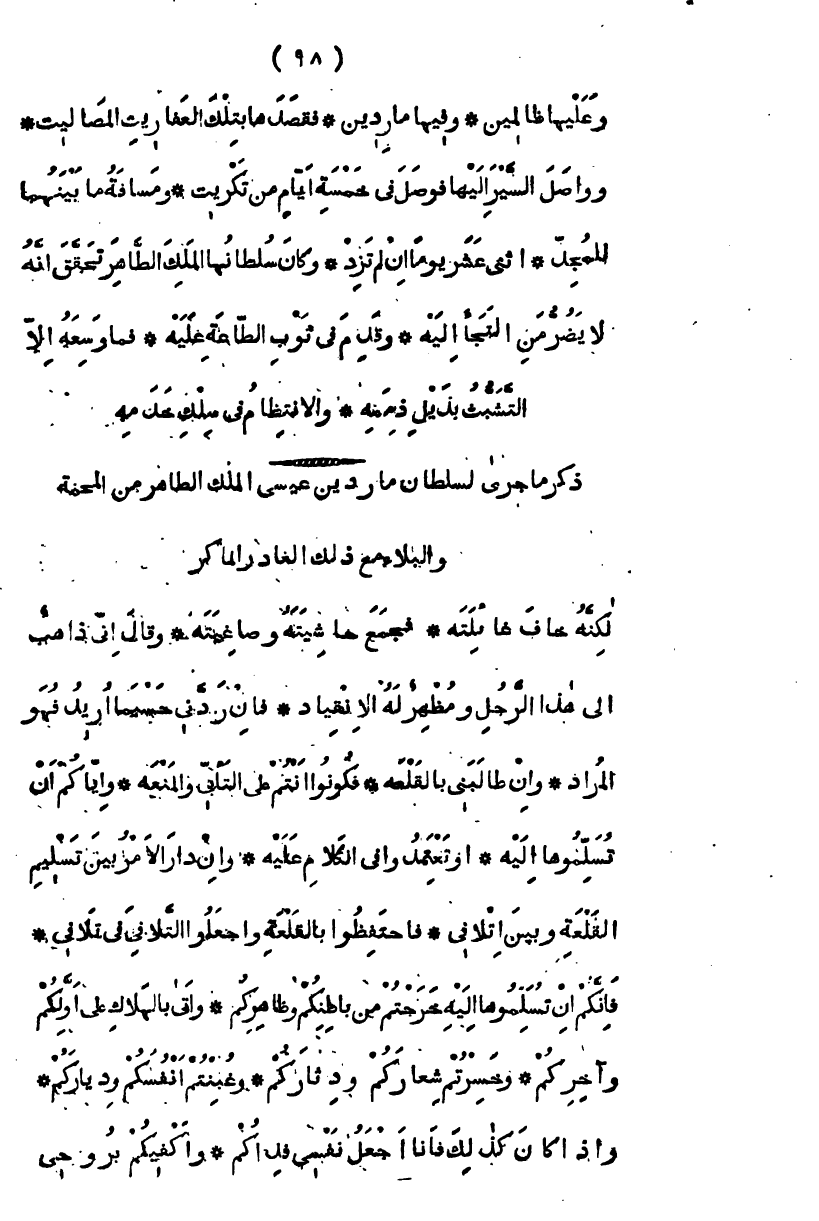 ( ٩٨ )
وَعَلَيْهَا ظَالِمِين * وفيها مارِدِين * فقَصَدَ هابتِلْكَ العَفَارِيتِ المَصَاليت *
وواصَلَ السَّيْرَ اِلَيْها فوصَلَ فى خَمْسَةِ ايَّامٍ من تَكْرِيت * ومَسافَةُ ما بَيْنَهُما
للمُجِدّ * اثنى عَشَر يوماً اِنْ لم تَزِدْ * وكانَ سُلطانُها المَلِكَ الطَّاهِرَ تَحَقَّقَ انَّهُ
لا يَضُرُّ مَنِ الْتَجَأَ اِلَيْه * وقَدِمَ فى ثَوْبِ الطّاعَةِ عَلَيْه * فما وَسِعَهُ اِلاّ
التَشَبُّثُ بذَيْلِ ذِمَمِه * والانتِظامُ فى سِلْكِ خَدَمِه
ذكر ما جرى لسلطان ماردين عيسى الملك الطاهر من المحنة
والبلاء مع ذلك الغادر الماكر
لٰكِنَّهُ خافَ غائِلَتَه * فجمَعَ حاشِيَتَهُ وصاغِيَتَه * وقالَ اِنّى ذاهبٌ
الى هٰذا الرَّجُلِ ومُظْهِرٌ لَهُ الاِنْقِياد * فاِنْ رَدَّنى حَسْبَما اُرِيدُ فهُو
المُراد * واِنْ طالَبَنى بالقَلْعَه * فكُونُوا انْتُمْ على التَأَبّى والمَنْعَه * واِيّاكُم اَنْ
تُسَلِّمُوها اِلَيْه * اوتَعْتَمِدُوا فى الكَلامِ عَلَيْه * واِنْ دارَ الاَمْرُ بينَ تَسْلِيمِ
القَلْعَةِ وبينَ اِتْلافى * فاحتَفِظُوا بالقَلْعَةِ واجعَلُوا التَّلافِىَ فى تَلافى *
فاِنَّكُمْ اِنْ تُسَلِّمُوها اِلَيْهِ خَرَجْتُمْ من باطِنِكُمْ وظاهِرِكُم * واَتى بالهَلاكِ على اَوَّلِكُمْ
وآخِرِكُمْ * وخَسِرْتُم شِعارَكُمْ ودِثارَكُمْ * وغُبِنْتم اَنْفُسَكُمْ ودِيارَكُمْ *
واذا كانَ كذٰلِكَ فأنا اَجْعَلُ نَفْسِى فِداكُمْ * واَكْفِيكُمْ بُروحى